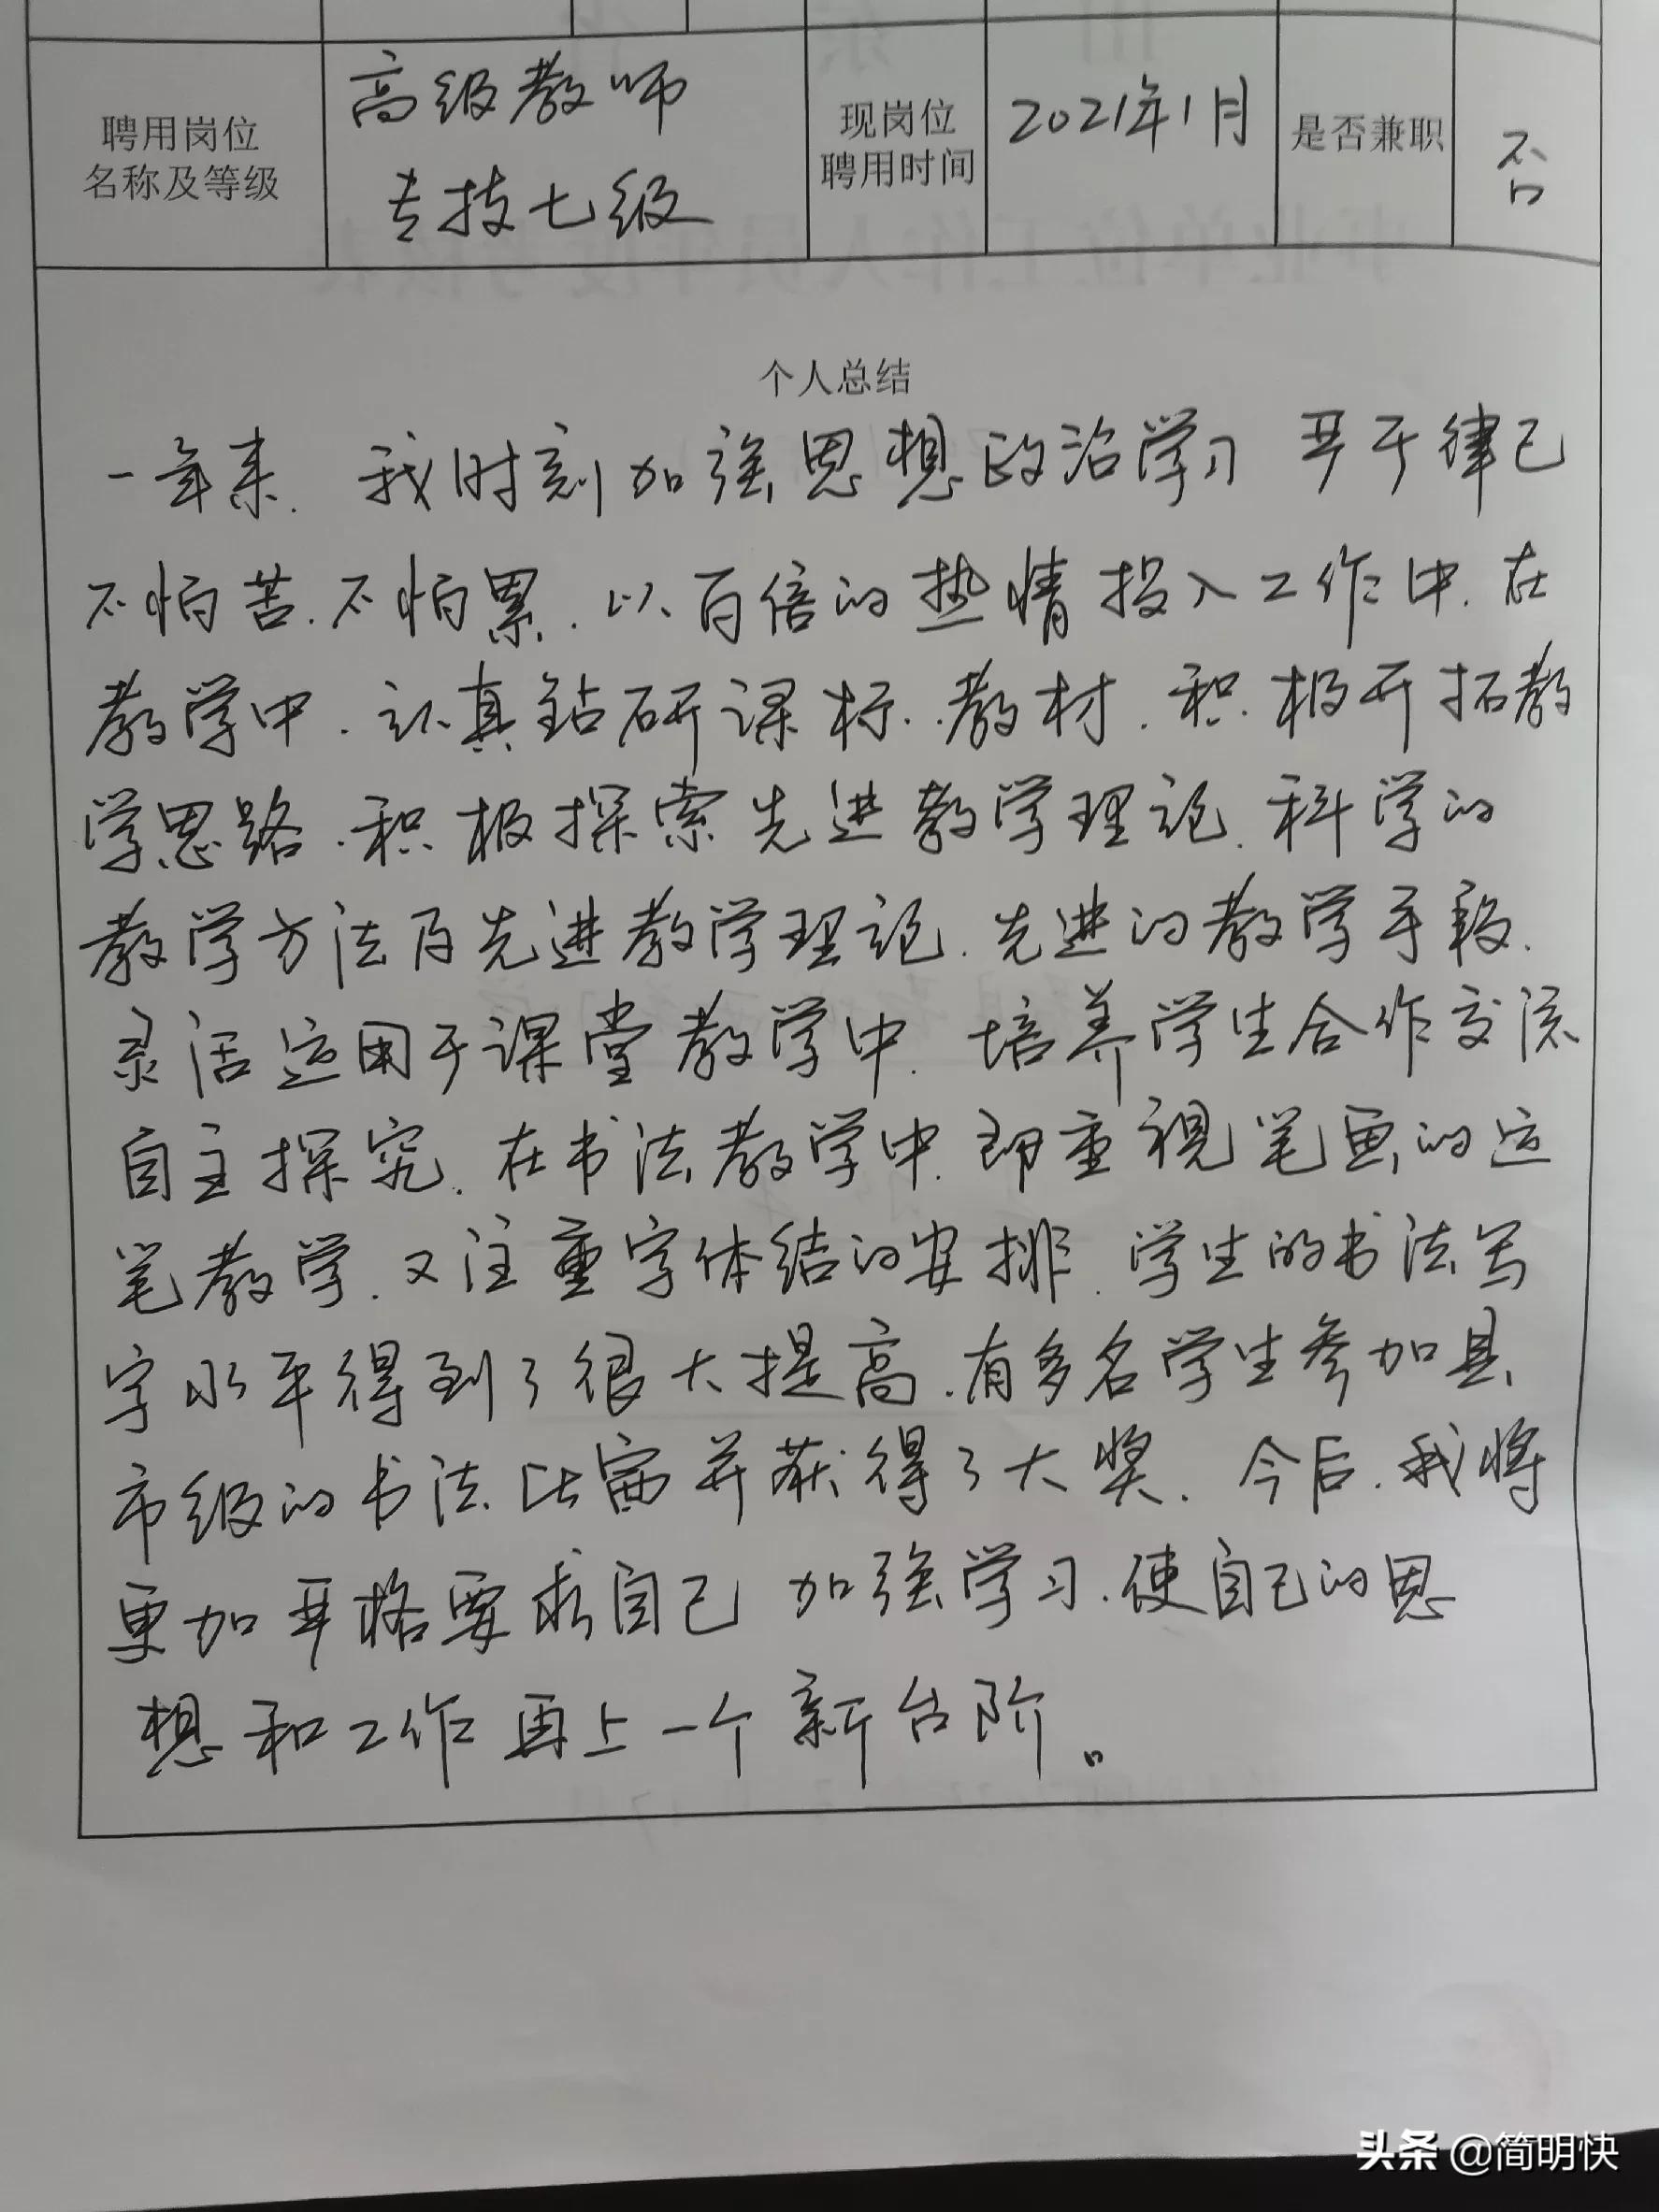 聘用岗位
名称及等级
高级教师
专技七级
现岗位
聘用时间
2021年1月
是否兼职
否
个人总结
一年来.我时刻加强思想政治学习 严于律己
不怕苦.不怕累.以百倍的热情投入工作中.在
教学中.认真钻研课标.教材.积极开拓教
学思路.积极探索先进教学理论.科学的
教学方法及先进教学理论.先进的教学手段.
灵活运用于课堂教学中.培养学生合作交流
自主探究.在书法教学中.即重视笔画的运
笔教学.又注重字体结的安排.学生的书法写
字水平得到了很大提高.有多名学生参加县
市级的书法比赛并获得了大奖.今后.我将
更加严格要求自己 加强学习.使自己的思
想和工作再上一个新台阶。
头条 @简明快